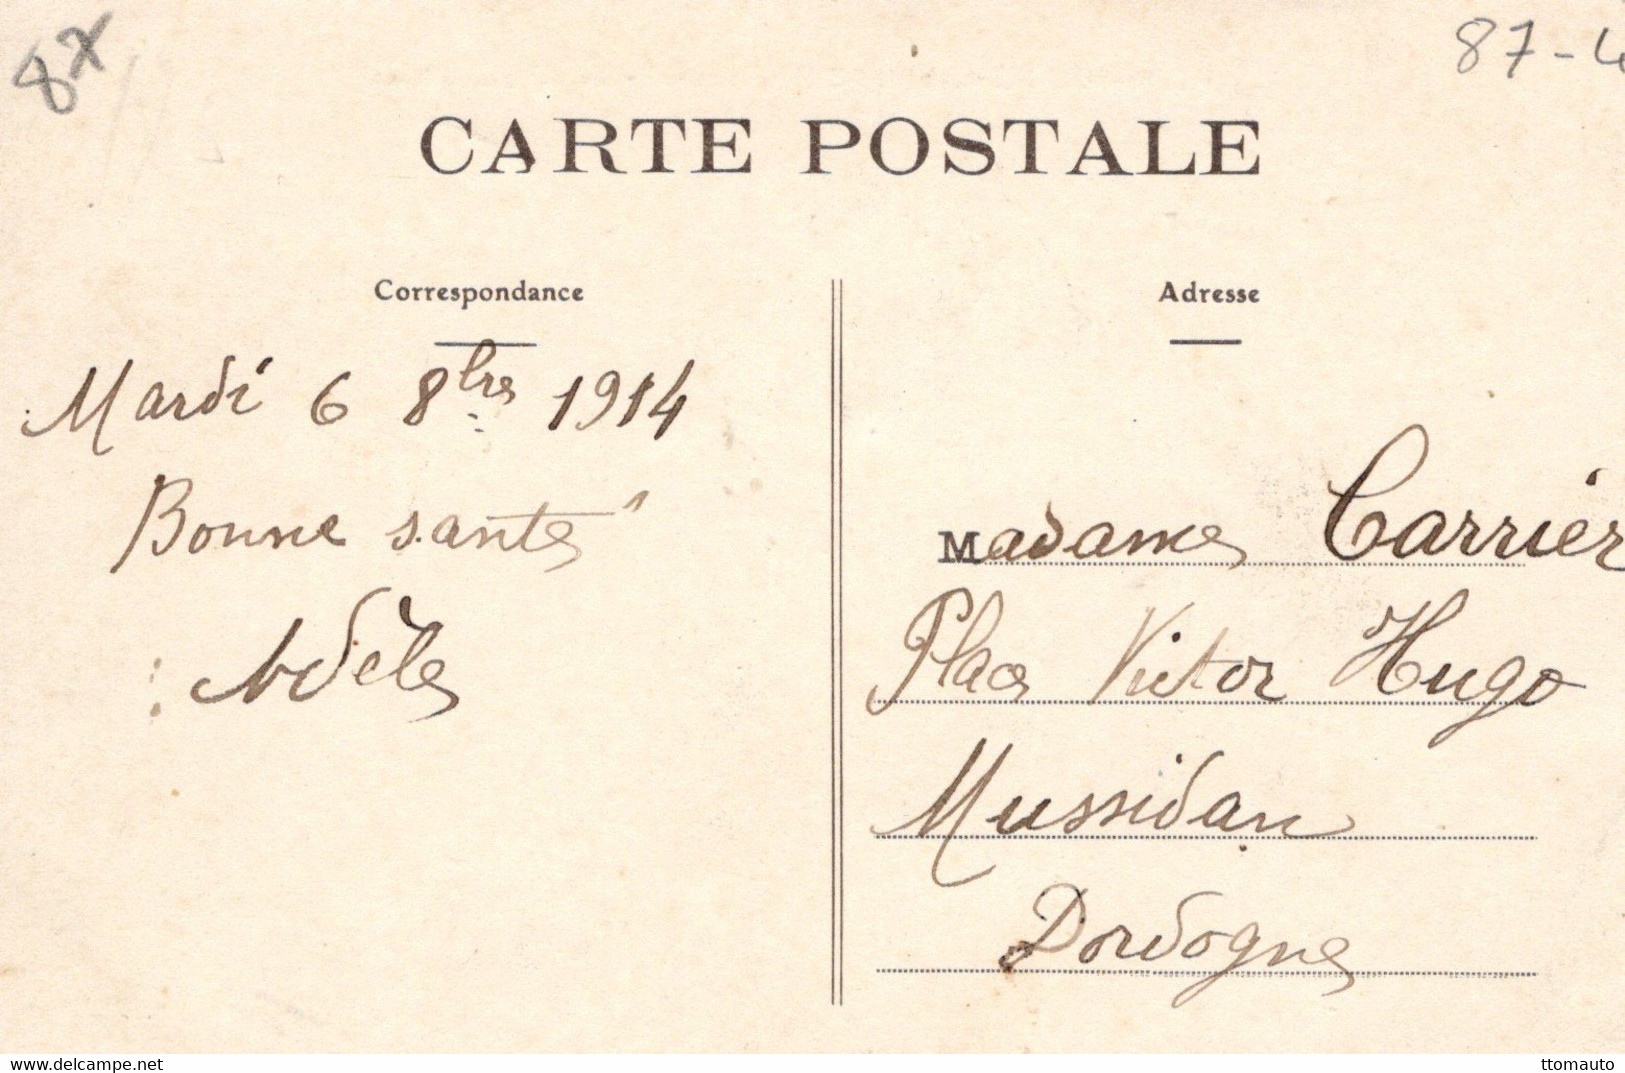 87
87-4
CARTE POSTALE
Correspondance
Adresse
Mardi 6 8bre 1914
Bonne santé
Adèle
Madame Carrier
Place Victor Hugo
Mussidan
Dordogne
delcampe.net
ttomauto